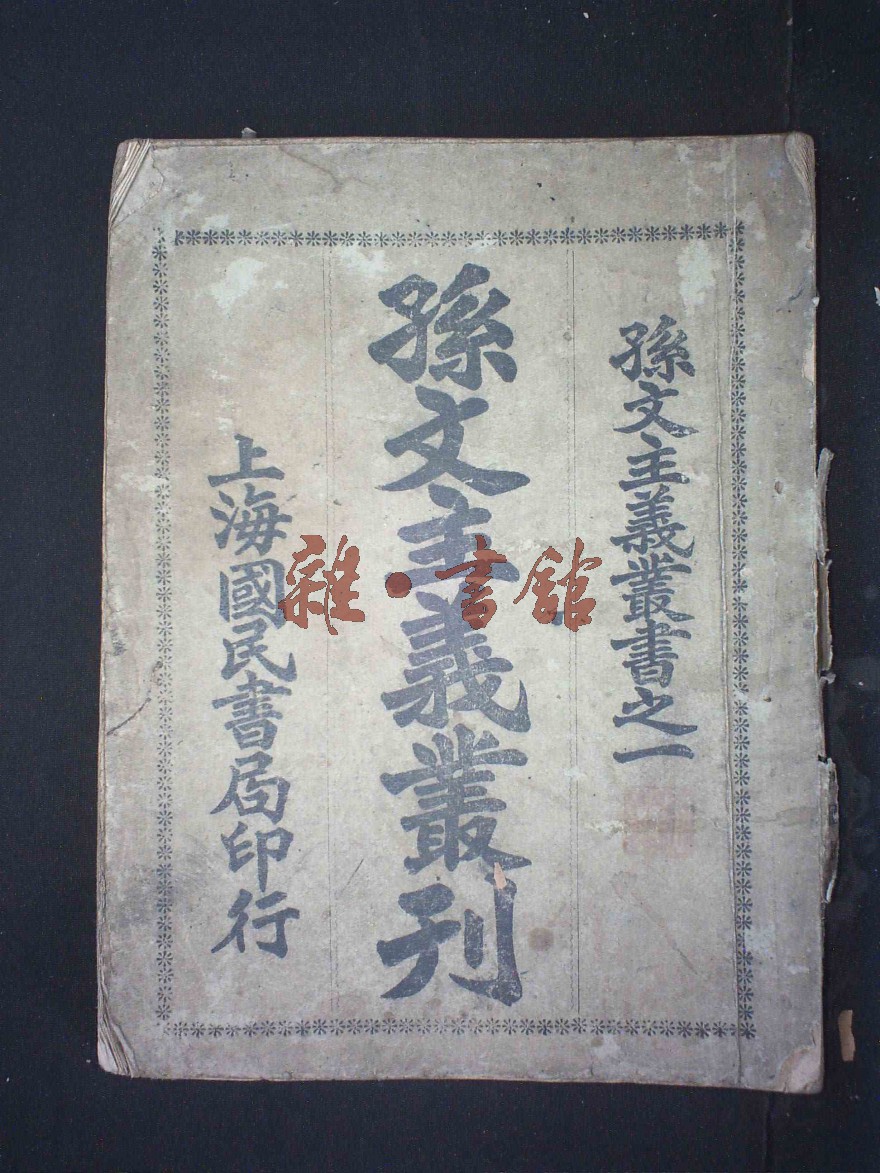 孫文主義叢書之一
孫文主義叢刊
上海國民書局印行
雜·書館